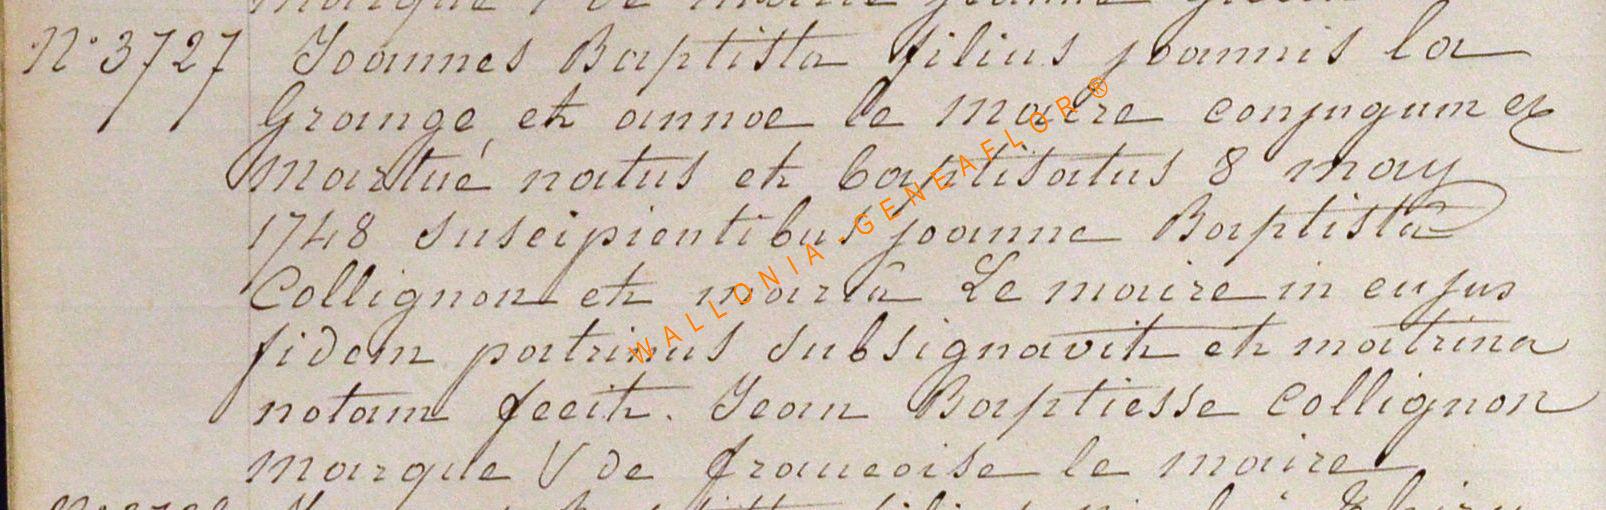 marque V de marie jeanne
N° 3727 Joannes Baptista filius joannis la
Grange et annae le maire conjugum ex
martué natus et baptisatus 8 may
1748 suscipientibus joanne Baptistâ
Collignon et mariâ Le maire in cujus
fidem patrinus subsignavit et matrina
notam fecit. Jean Baptiesse Collignon
marque V de francoise le maire
WALLONIA-GENEAFLOR®